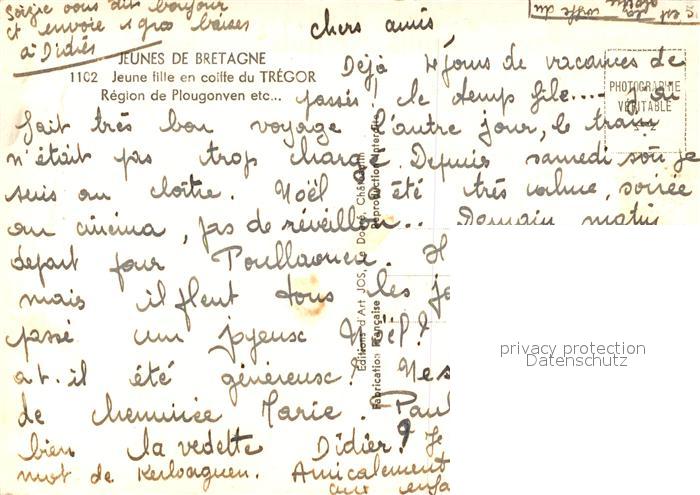 Soizic vous dit bonjour
et envoie 1 gros baiser
à Didier
c'est la coiffe du
chers amis,
JEUNES DE BRETAGNE
1102 Jeune fille en coiffe du TRÉGOR
Région de Plougonven etc...
PHOTOGRAPHIE
VÉRITABLE
Déjà 4 jours de vacances de
passés! le temps file.... J'ai
fait très bon voyage l'autre jour, le train
n'était pas trop chargé. Depuis samedi soir je
suis au cloître. Noël a été très calme, soirée
au cinéma, pas de réveillon... Demain matin
départ pour Poullaouen.
mais il pleut tous les
passé un joyeux Noël?
a t-il été généreux?
de cheminée Marie. Paul
bien la vedette Didier? Je
mot de Kerloaguen. Amicalement
aux
Editions d'Art JOS, Le Doaré, Châteaulin
Reproduction interdite
Fabrication Française
privacy protection
Datenschutz